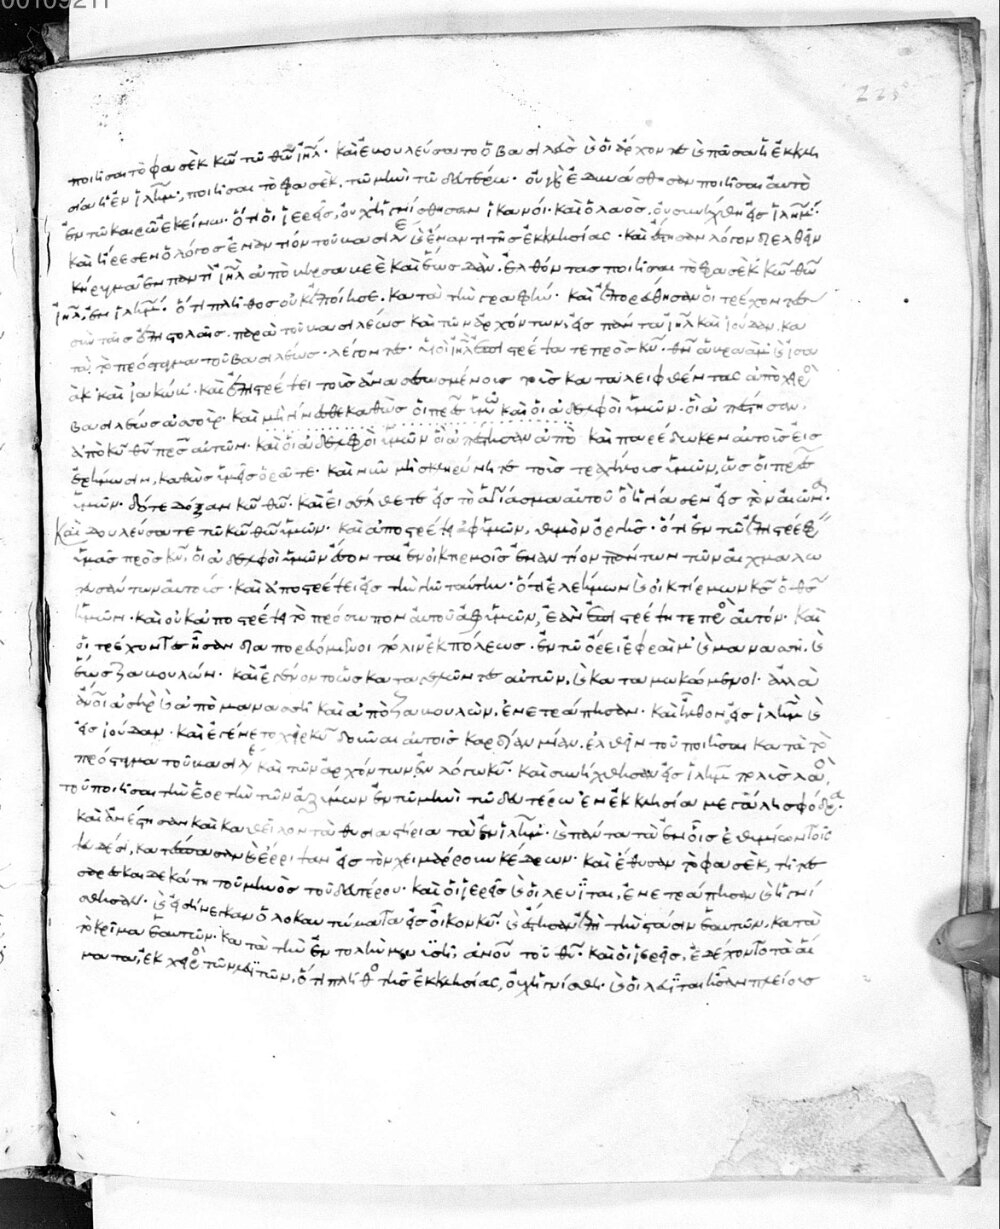 ποιῆσαι τὸ φασὲκ κ̅ω̅ τῶ θ̅ω̅ ἰη̅λ. καὶ ἐβουλεύσατο ὁ βασιλεὺσ καὶ οἱ ἄρχοντες καὶ πᾶσα ἡ ἐκκλη
σία ἡ ἐν ἰλη̅μ, ποιῆσαι τὸ φασὲκ, τῶ μηνὶ τῶ δευτέρω. οὐ γὰρ ἐδυνάσθησαν ποιῆσαι αὐτὸ
ἐν τῶ καιρῶ ἐκείνω. ὅτι οἱ ἱερεῖς, οὐχ ἡγνίσθησαν ἱκανοί. καὶ ὁ λαὸσ, οὐ συνήχθη εἰς ἰλη̅μ.
καὶ ἤρεσεν ὁ λόγοσ ἐναντίον τοῦ βασιλε καὶ ἐναντι τῆσ ἐκκλησίας. καὶ ἔστησαν λόγον διελθεῖν
κήρυγμα ἐν παντὶ ἰη̅λ ἀπὸ βηρσαβεὲ καὶ ἕως δὰν. ἐλθόντας ποιῆσαι τὸ φασὲκ κ̅ω̅ θ̅ω̅
ἰη̅λ, ἐν ἰλη̅μ. ὅτι πλῆθοσ οὐκ ἐποίησε, κατὰ τὴν γραφήν. καὶ ἐπορεύθησαν οἱ τρέχοντες
σὺν ταῖσ ἐπιστολαῖσ, παρὰ τοῦ βασιλέωσ καὶ τῶν ἀρχόντων, εἰς πάντα ἰη̅λ καὶ ἰούδαν, κα
τὰ τὸ πρόσταγμα τοῦ βασιλέως. λέγοντες. υἱοὶ ἰη̅λ ἐπιστρέψατε πρὸσ κ̅ν̅ θ̅ν̅ ἀβραὰμ καὶ ἰσα
ὰκ καὶ ἰακώβ. καὶ ἐπιστρέψει τοὺσ ἀνασεσωσμένουσ τοὺσ καταλειφθέντας ἀπὸ χειρὸ
βασιλέωσ ἀσούρ. καὶ μὴ γίνεσθε καθὼσ οἱ πρες ὑμῶ καὶ οἱ ἀδελφοὶ ὑμῶν. οἳ ἀπέστησαν,
ἀπὸ κ̅υ̅ θ̅υ̅ πρς αὐτῶν. καὶ οἱ ἀδελφοὶ ὑμῶν οἳ ἀπέστησαν ἀπὸ καὶ παρέδωκεν αὐτοὺσ εἰσ
ἐρήμωσιν, καθὼσ ὑμεῖς ὁρᾶτε. καὶ νῦν μὴ σκληρύνητε τοὺσ τραχήλουσ ὑμῶν, ὡσ οἱ πρες
ὑμῶν. δότε δόξαν κ̅ω̅ θ̅ω̅. καὶ εἰσέλθετε εἰς τὸ ἁγίασμα αὐτοῦ ὃ ἡγίασεν εἰς τὸν αἰῶνα.
καὶ δουλεύσατε τῶ κ̅ω̅ θ̅ω̅ ὑμῶν. καὶ ἀποστρέψει ἀφ' ὑμῶν, θυμὸν ὀργῆσ. ὅτι ἐν τῶ ἐπιστρέφειν
ὑμᾶσ πρὸσ κ̅ν̅, οἱ ἀδελφοὶ ὑμῶν ἔσονται ἐν οἰκτιρμοῖσ ἔναντίον πάντων τῶν αἰχμαλω
τισάντων αὐτούσ. καὶ ἀποστρέψει εἰς τὴν γῆν ταύτην. ὅτι ἐλεήμων καὶ οἰκτίρμων κ̅σ̅ ὁ θ̅σ̅
ἡμῶν. καὶ οὐκ ἀποστρέψει τὸ πρόσωπον αὐτοῦ ἀφ' ἡμῶν, ἐὰν ἐπιστρέψητε πρὸ αὐτόν. καὶ
οἱ τρέχοντες ἦσαν διαπορευόμενοι πόλιν ἐκ πόλεωσ. ἐν τῶ ὄρει ἐφραὶμ καὶ μαννασῆ, καὶ
ἕωσ ζαβουλών. καὶ ἐγένοντο ὡς καταγελῶντες αὐτῶν, καὶ καταμωκώμενοι. ἀλλὰ
ἄνοι ἀσὴρ καὶ ἀπὸ μαννασῆ καὶ ἀπὸ ζαβουλὼν, ἐνετράπησαν. καὶ ἦλθον εἰς ἰλη̅μ καὶ
εἰς ἰούδαν. καὶ ἐγένετο χεὶρ κ̅υ̅ δοῦναι αὐτοῖσ καρδίαν μίαν. ἐλθεῖν τοῦ ποιῆσαι κατὰ τὸ
πρόσταγμα τοῦ βασιλε καὶ τῶν ἀρχόντων ἐν λόγω κ̅υ̅. καὶ συνήχθησαν εἰς ἰλη̅μ πολὺσ λαὸ,
τοῦ ποιῆσαι τὴν ἑορτὴν τῶν ἀζύμων ἐν τῶ μηνὶ τῶ δευτέρω ἐν ἐκκλησία μεγάλη σφόδρα.
καὶ ἀνέστησαν καὶ καθεῖλον τὰ θυσιαστήρια τὰ ἐν ἰλη̅μ. καὶ πάντα τὰ ἐν οἷσ ἐθυμίων τοῖς
ψευδέσι, κατέσπασαν καὶ ἔρριψαν εἰς τὸν χειμάρρουν κέδρων. καὶ ἔθυσαν τὸ φασὲκ, τῆ τε
σαρεσκαιδεκάτη τοῦ μηνὸσ τοῦ δευτέρου. καὶ οἱ ἱερεῖς καὶ οἱ λευῖται, ἐνετράπησαν καὶ ἡγνί
σθησαν. καὶ εἰσήνεγκαν ὁλοκαυτώματα εἰς οἶκον κ̅υ̅. καὶ ἔστησαν ἐπὶ τὴν στάσιν ἑαυτῶν, κατὰ
τὸ κρίμα ἑαυτῶν. κατὰ τὴν ἐντολὴν μωϋσῆ, ἀνου τοῦ θ̅υ̅. καὶ οἱ ἱερεῖς, ἐδέχοντο τὰ αἵ
ματα, ἐκ χειρὸ τῶν λευϊτῶν, ὅτι πλῆθο τῆσ ἐκκλησίας, οὐχ ἡγνίσθη. καὶ οἱ λευῖται ἦσαν πλείουσ